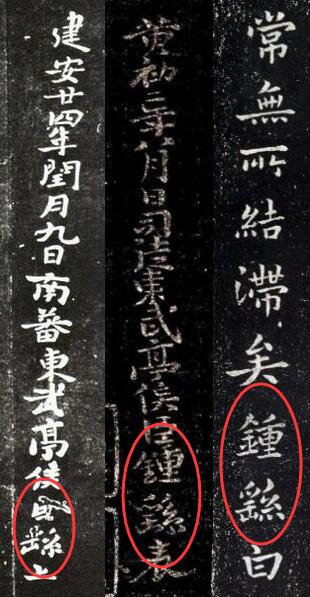 常無所結滯矣鍾繇白
黄初二年八月日司徒東武亭侯臣鍾繇表
建安廿四年閏月九日南蕃東武亭侯臣繇上